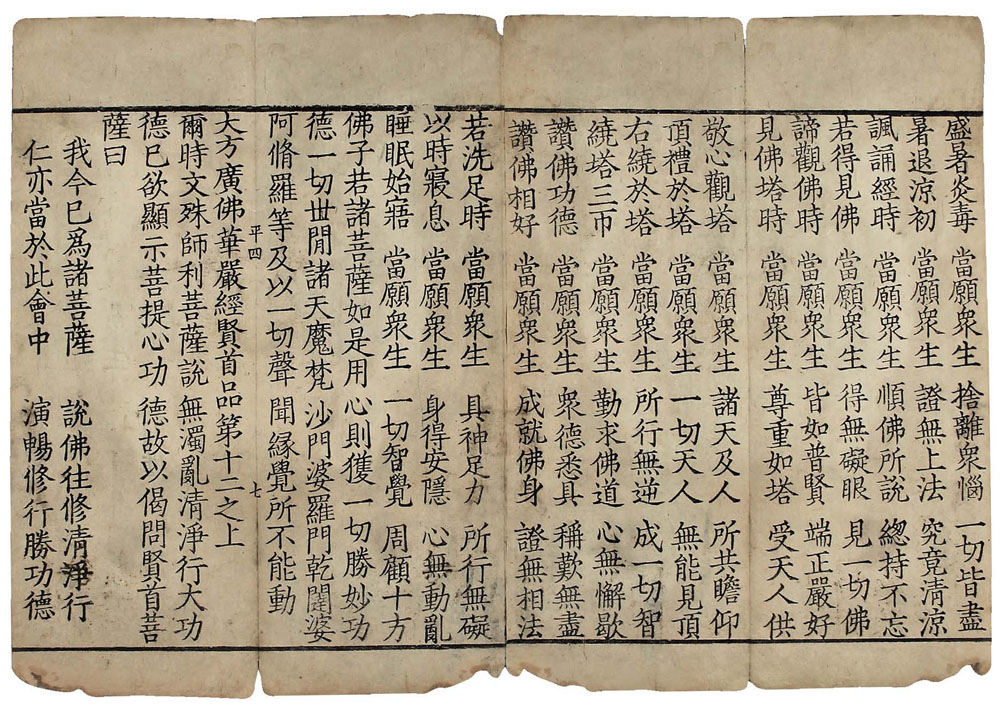 盛暑炎毒 當願衆生 捨離衆惱 一切皆盡
暑退涼初 當願衆生 證無上法 究竟清涼
諷誦經時 當願衆生 順佛所說 緫持不忘
若得見佛 當願衆生 得無礙眼 見一切佛
諦觀佛時 當願衆生 皆如普賢 端正嚴好
見佛塔時 當願衆生 尊重如塔 受天人供
敬心觀塔 當願衆生 諸天及人 所共瞻仰
頂禮於塔 當願衆生 一切天人 無能見頂
右繞於塔 當願衆生 所行無逆 成一切智
繞塔三帀 當願衆生 勤求佛道 心無懈歇
讚佛功德 當願衆生 衆德悉具 稱歎無盡
讚佛相好 當願衆生 成就佛身 證無相法
若洗足時 當願衆生 具神足力 所行無礙
以時寢息 當願衆生 身得安隱 心無動亂
睡眠始寤 當願衆生 一切智覺 周顧十方
佛子若諸菩薩如是用心則獲一切勝妙功
德一切世閒諸天魔梵沙門婆羅門乾闥婆
阿脩羅等及以一切聲聞緣覺所不能動
平四 七
大方廣佛華嚴經賢首品第十二之上
爾時文殊師利菩薩說無濁亂清淨行大功
德已欲顯示菩提心功德故以偈問賢首菩
薩曰
我今已爲諸菩薩 說佛往修清淨行
仁亦當於此會中 演暢修行勝功德